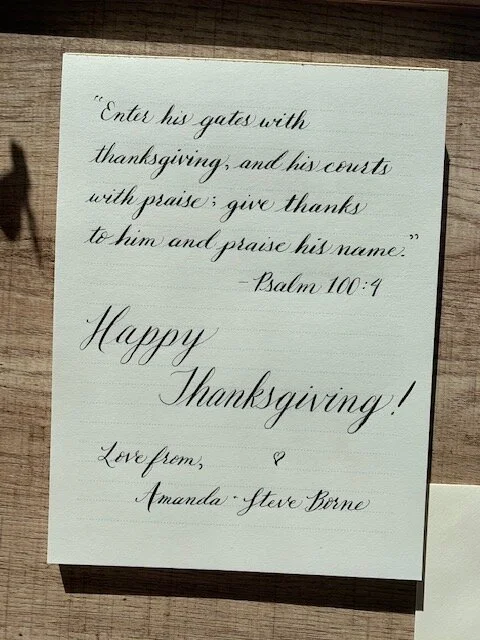 "Enter his gates with
thanksgiving, and his courts
with praise; give thanks
to him and praise his name."
- Psalm 100:4
Happy
Thanksgiving!
Love from, ♡
Amanda · Steve Borne